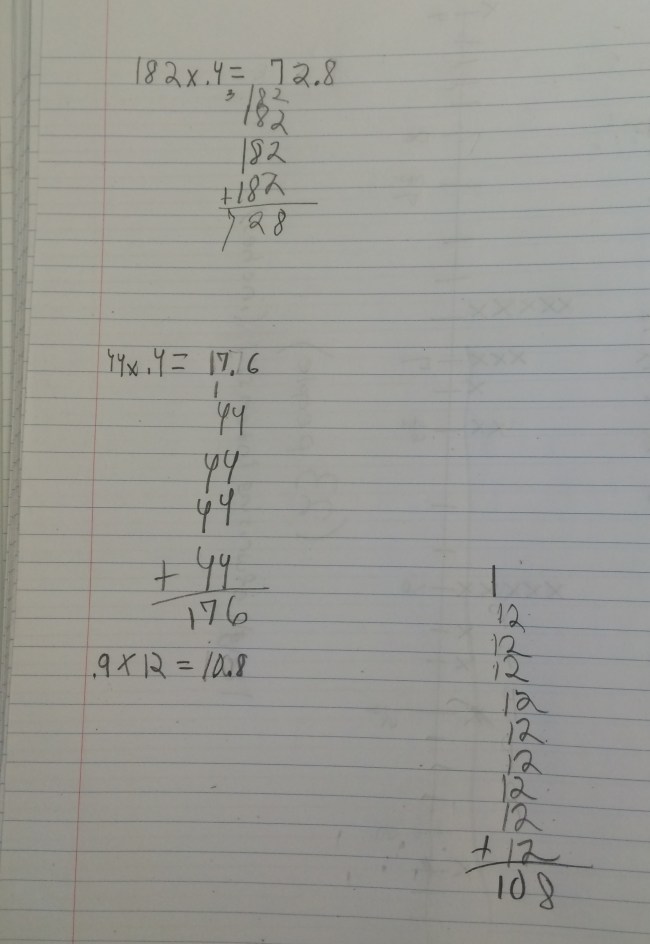 182x.4= 72.8
3 182
182
182
+182
728
44x.4= 17.6
1
44
44
44
+ 44
176
.9x12=10.8
1
12
12
12
12
12
12
12
12
+ 12
108